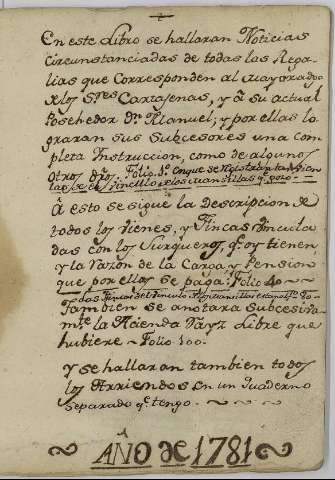 En este Libro se hallaran Noticias
circunstanciadas de todas las Rega-
lias que corresponden al mayorado
de los Sres Cartajenas, y â su actual
Poshehedor Dn. Manuel; y por ellas lo-
graran sus Subcesores una com-
pleta Instruccion, como de algunos
otros dros. Folio 1. En que se
â esto se sigue la Descripcion de
todos los vienes, y Fincas vincula-
das con los Surqueros, qe. oy tienen,
y la Razon de la Carga, y Pension
que por ellos se paga. Folio 40
Tambien se anotara Subcesiva-
mte. la Hacienda Rayz Libre que
hubiere - Folio 100.
Y se hallaran tambien todos
los Arriendos en un Quaderno
separado qe. tengo.
AÑO de 1781